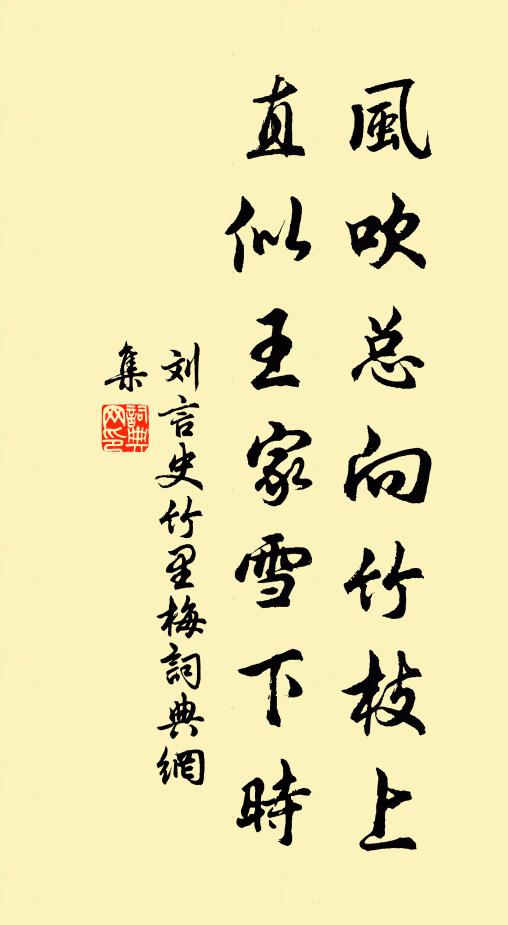 風吹总向竹枝上
直似王家雪下時
刘言史竹里梅詞典網
集
詞典网印